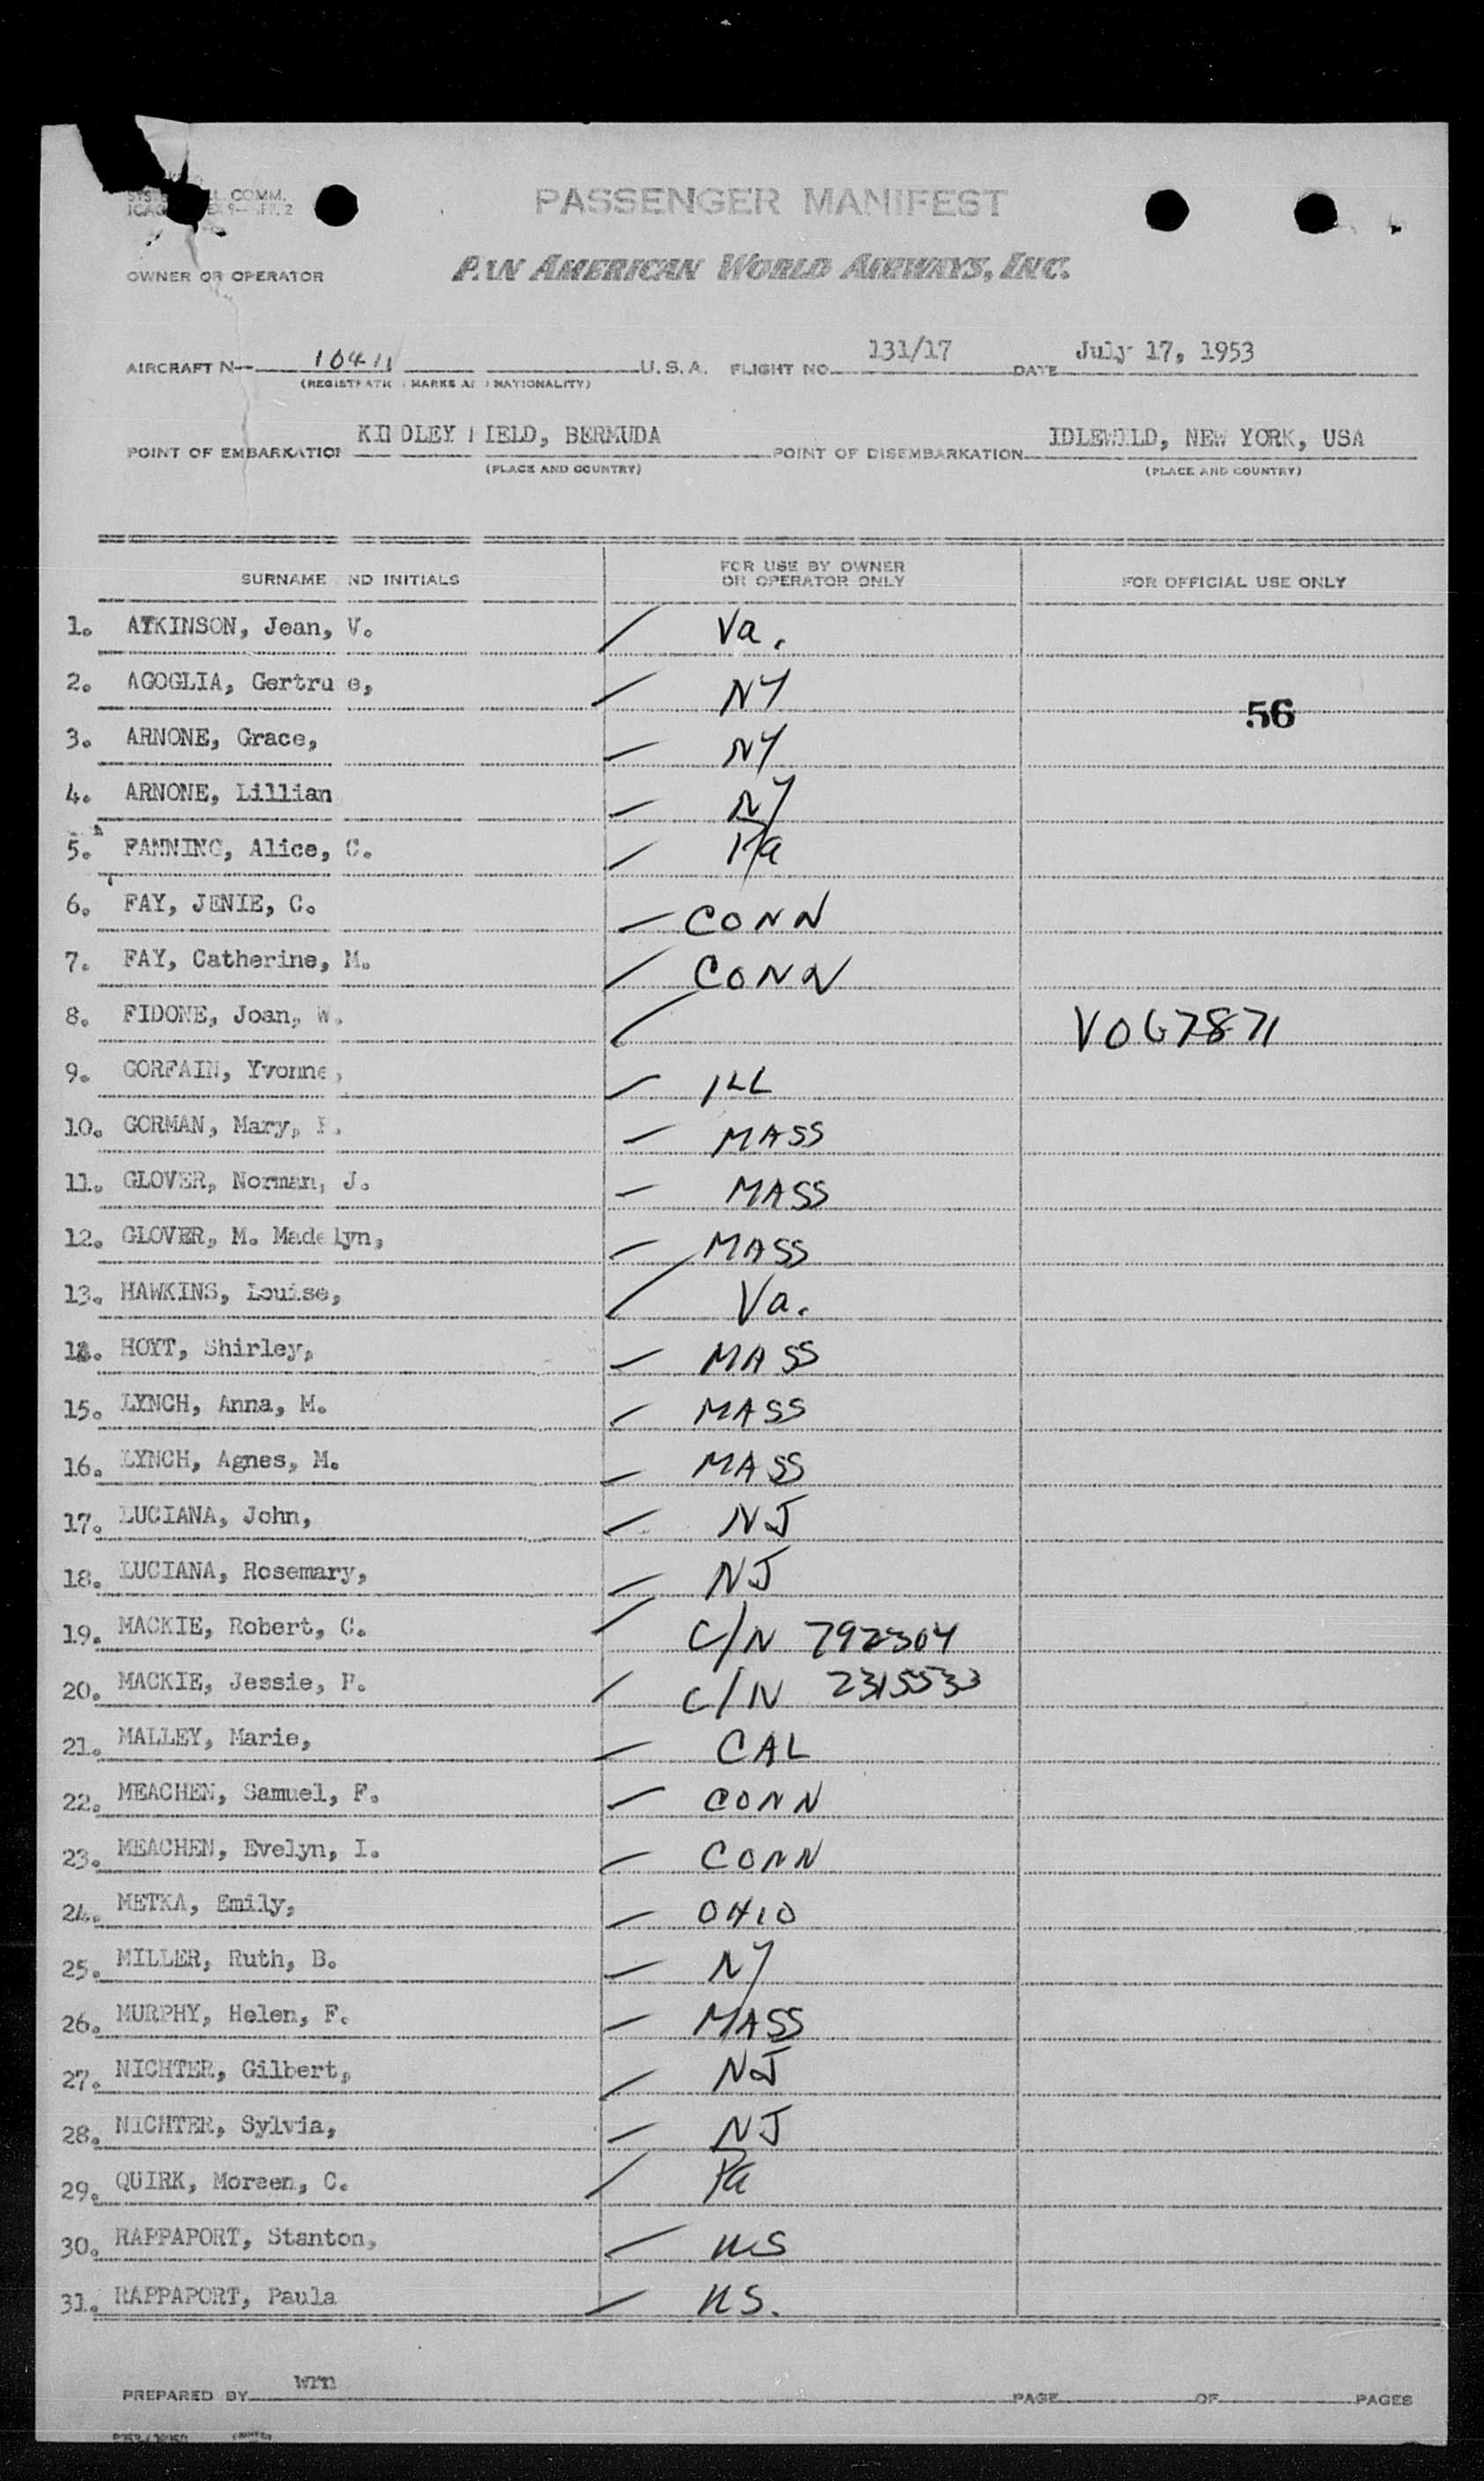 L COMM.
PASSENGER MANIFEST
OWNER OR OPERATOR PAN AMERICAN WORLD AIRWAYS, INC.
AIRCRAFT N- 10411 U.S.A. FLIGHT NO. 131/17 DATE July 17, 1953
(REGISTRATION MARKS AND NATIONALITY)
POINT OF EMBARKATION KINDLEY FIELD, BERMUDA POINT OF DISEMBARKATION IDLEWILD, NEW YORK, USA
(PLACE AND COUNTRY) (PLACE AND COUNTRY)
SURNAME ND INITIALS FOR USE BY OWNER OR OPERATOR ONLY FOR OFFICIAL USE ONLY
1. ATKINSON, Jean, V. Va.
2. AGOGLIA, Gertru e, NY
56
3. ARNONE, Grace, NY
4. ARNONE, Lillian NY
5. FANNING, Alice, C. Pa
6. FAY, JENIE, C. CONN
7. FAY, Catherine, M. CONN
8. FIDONE, Joan, W. V067871
9. GORFAIN, Yvonne, ILL
10. GORMAN, Mary, MASS
11. GLOVER, Norman, J. MASS
12. GLOVER, M. Madelyn, MASS
13. HAWKINS, Louise, Va.
14. HOYT, Shirley, MASS
15. LYNCH, Anna, M. MASS
16. LYNCH, Agnes, M. MASS
17. LUCIANA, John, NJ
18. LUCIANA, Rosemary, NJ
19. MACKIE, Robert, C. C/N 792304
20. MACKIE, Jessie, P. C/N 2315533
21. MALLEY, Marie, CAL
22. MEACHEN, Samuel, F. CONN
23. MEACHEN, Evelyn, I. CONN
24. METKA, Emily, OHIO
25. MILLER, Ruth, B. NY
26. MURPHY, Helen, F. MASS
27. NICHTER, Gilbert, NJ
28. NICHTER, Sylvia, NJ
29. QUIRK, Moreen, C. Pa
30. RAPPAPORT, Stanton, US
31. RAPPAPORT, Paula US.
PREPARED BY PAGE OF PAGES